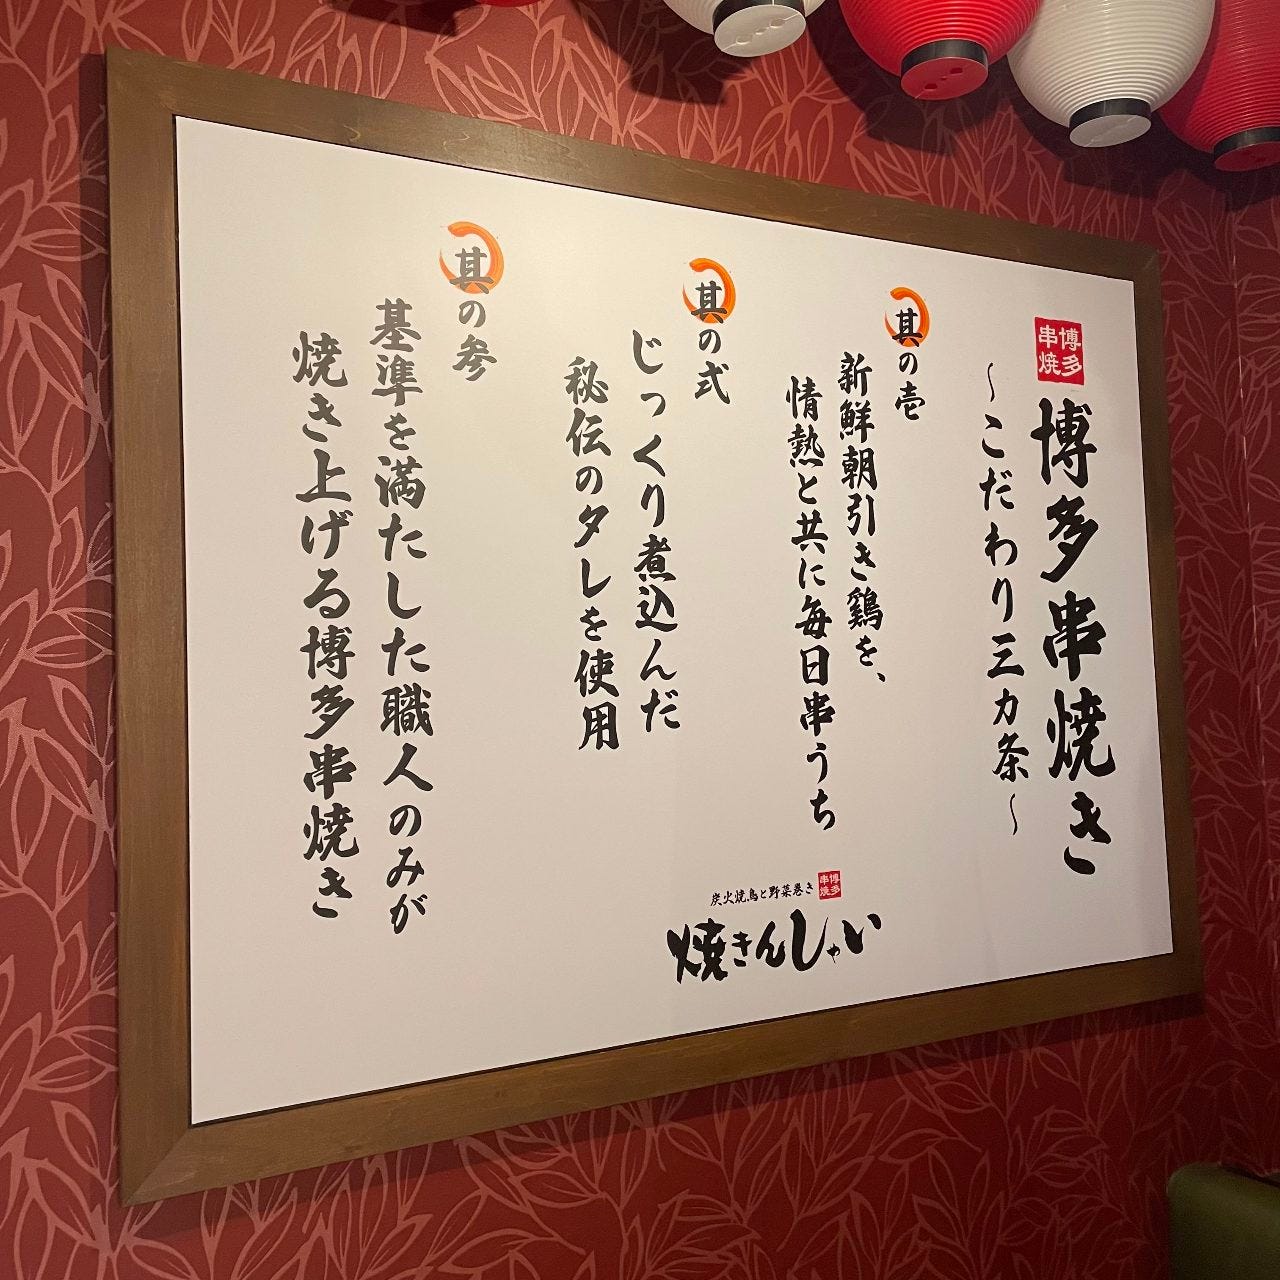 博多串焼
博多串焼き
～こだわり三カ条～
其の壱
新鮮朝引き鶏を、
情熱と共に毎日串うち
其の弐
じっくり煮込んだ
秘伝のタレを使用
其の参
基準を満たした職人のみが
焼き上げる博多串焼き
炭火焼鳥と野菜巻き
博多串焼
焼きんしゃい